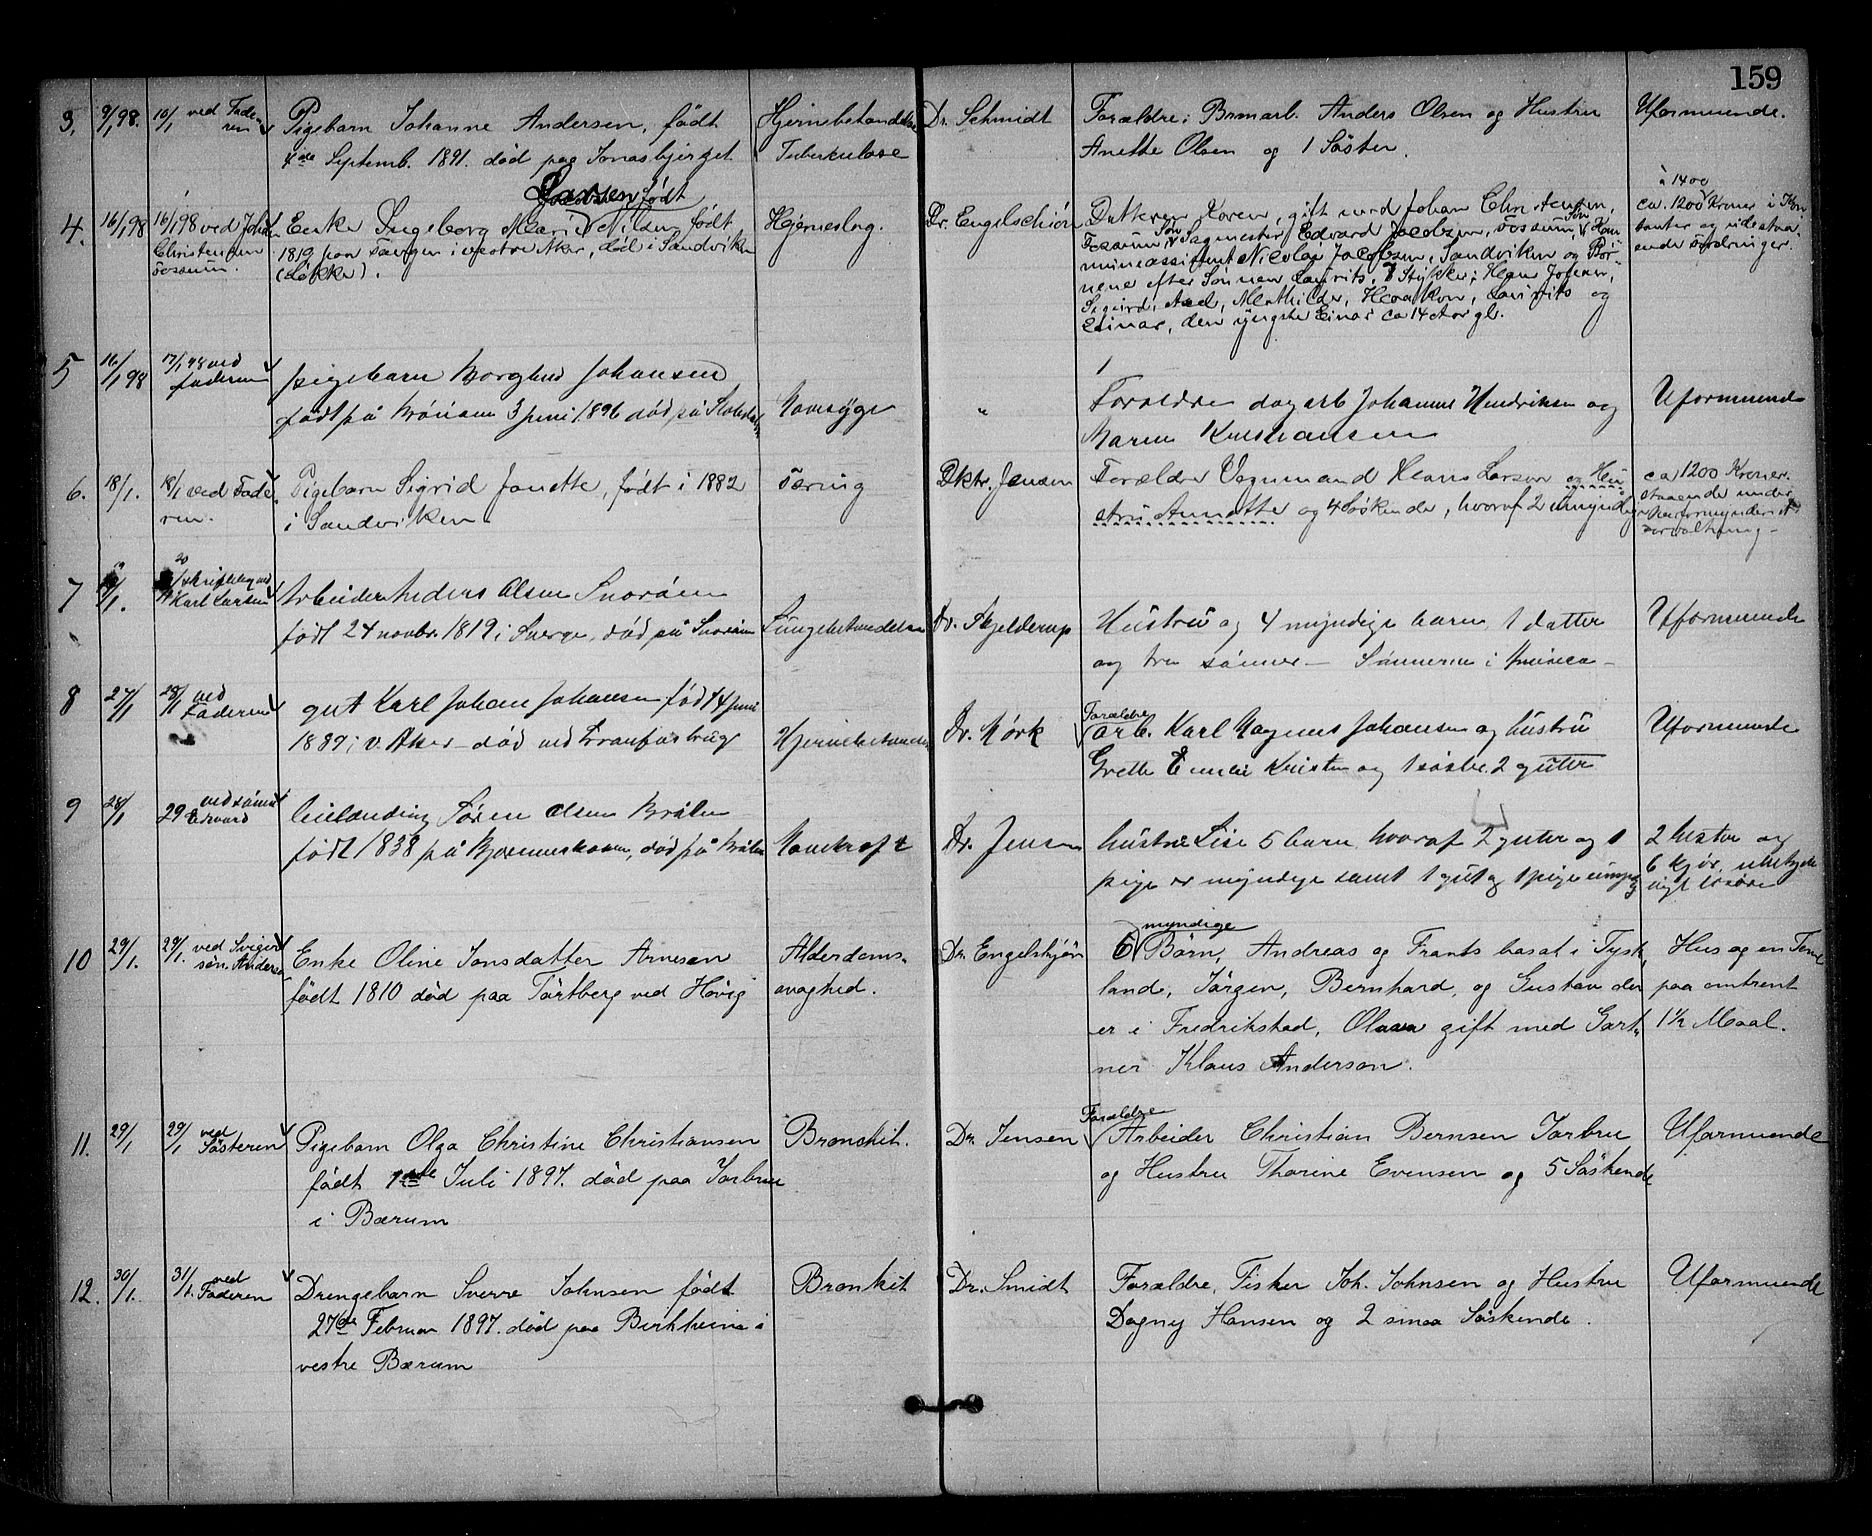 159
3. 9/1 98. 10/1 ved Fade- Pigebarn Johanne Andersen, født Hjernebetændelse Dr. Schmidt Forældre: Brmarb. Anders Olsen og Hustru Uformuende.
ren 4de Septemb. 1891. død paa Jonasbjerget Tuberkulose Anette Olsen og 1 Søster.
født
à 1400
4. 16/1 98 16/1 98 ved Johan Enke Ingeborg Marie Nilsen født Hjerneslag. Dr. Engelschiøn Datteren Karen, gift med Johan Christensen, ca. 1200 Kroner i Kon-
Christensen 1819 paa i vestre Aker, død i Sandviken Fossum, Søn Sagmester Edvard Jacobsen, Fossum, Søn Kom- tanter og udestaa-
Fossum. (Løkke). muneassistent Nicolay Jacobsen, Sandviken og Bør- ende fordringer.
nene efter Sønnen Laurits, 7 Stykker: Hans Johan,
Sigurd, Axel, Mathilde, Haakon, Laurits og
Einar, den yngste Einar ca 14 Aar gl.
5 16/1 98 17/1 98 ved pigebarn Borghild Johansen
faderen født på 3 juni 1896 død på Mavesyge " Forældre dagarb Johannes Hendriksen og Uformuende
Maren Kristiansen
6. 18/1. 18/1 ved Fade- Pigebarn Sigrid Janette, født i 1882 Tæring Dktr. Jensen Forældre Vognmand Hans Larsen og Hu- ca 1200 Kroner
ren. i Sandviken stru Annette og 4 Søskende, hvoraf 2 umyndige staaende under
overformynderiets
forvaltning -
7 /1. 20/1 skriftlig ved Arbeider Anders Olsen Snarøen
Karl Larsen født 24 novbr. 1819 i Sverge, død på Snarøen Lungebetændelse Dr. Skjelderup Hustru og 4 myndige barn, 1 datter Uformuende
og tre sønner - Sønnerne i Amerika -
8 27/1 28/1 ved gut Karl Johan Johansen født 4 juni Forældre
Faderen 1889 i v. Aker - død ved Granfosbrug Hjernebetændelse Dr. Mørk arb. Karl Magnus Johansen og hustru Uformuende
Grette Emilie Kristin og 1 søster 2 gutter
9 28/1 29 ved sønnen leilænding Søren Olsen Bråten
Edvard født 1838 på Bjørneskoven, død på Bråten Mavekræft Dr. Jensen hustru Lise 5 barn, hvoraf 2 guter og 1 2 hester og
pige er myndige samt 1 gut og 1 pige umyndig 6 kjør, ubetyde-
ligt løsøre
myndige
10 29/1. 29/1. ved Sviger- Enke Oline Jonsdatter Arnesen Alderdoms- Dr. Engelskjøn 6 Børn, Andreas og Frants bosat i Tysk- Hus og en Tomt
søn Anderson født 1810 død paa Tårtberg ved Høvig svaghed. land, Jørgen, Bernhard, og Gustav der paa omtrent
er i Fredrikstad, Olava gift med Gart- 1½ Maal.
ner Klaus Anderson.
Forældre
11. 29/1 29/1 ved Pigebarn Olga Christine Christiansen Bronckit. Dr. Jensen Arbeider Christian Bernsen Jarbru Uformuende
Søsteren født 1ste Juli 1897. død paa Jarbru og Hustru Thorine Evensen og 5 Søskende
i Bærum
12. 30/1. 31/1. ved Drengebarn Sverre Johnsen født Bronkit Dr. Smidt Forældre, Fisker Joh. Johnsen og Hustru Uformuende
Faderen 27de Februar 1897. død paa Birkheim i Dagny Hansen og 2 smaa Søskende.
vestre Bærum